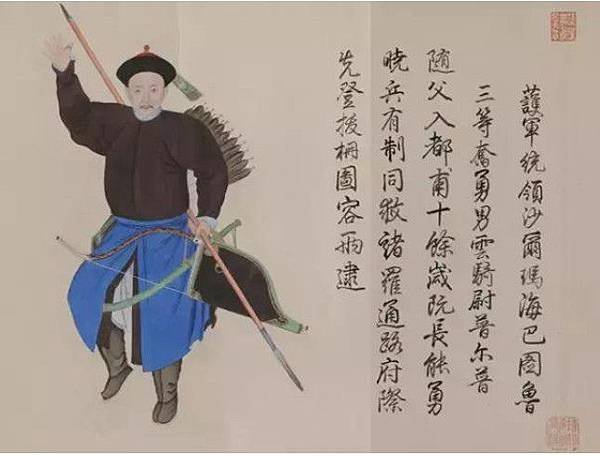 護軍統領沙爾瑪海巴圖魯
三等奮勇男雲騎尉普尔普
随父入都甫十餘歲既長能勇
曉兵有制同救諸羅通路府際
先登拔柵圖容兩逮